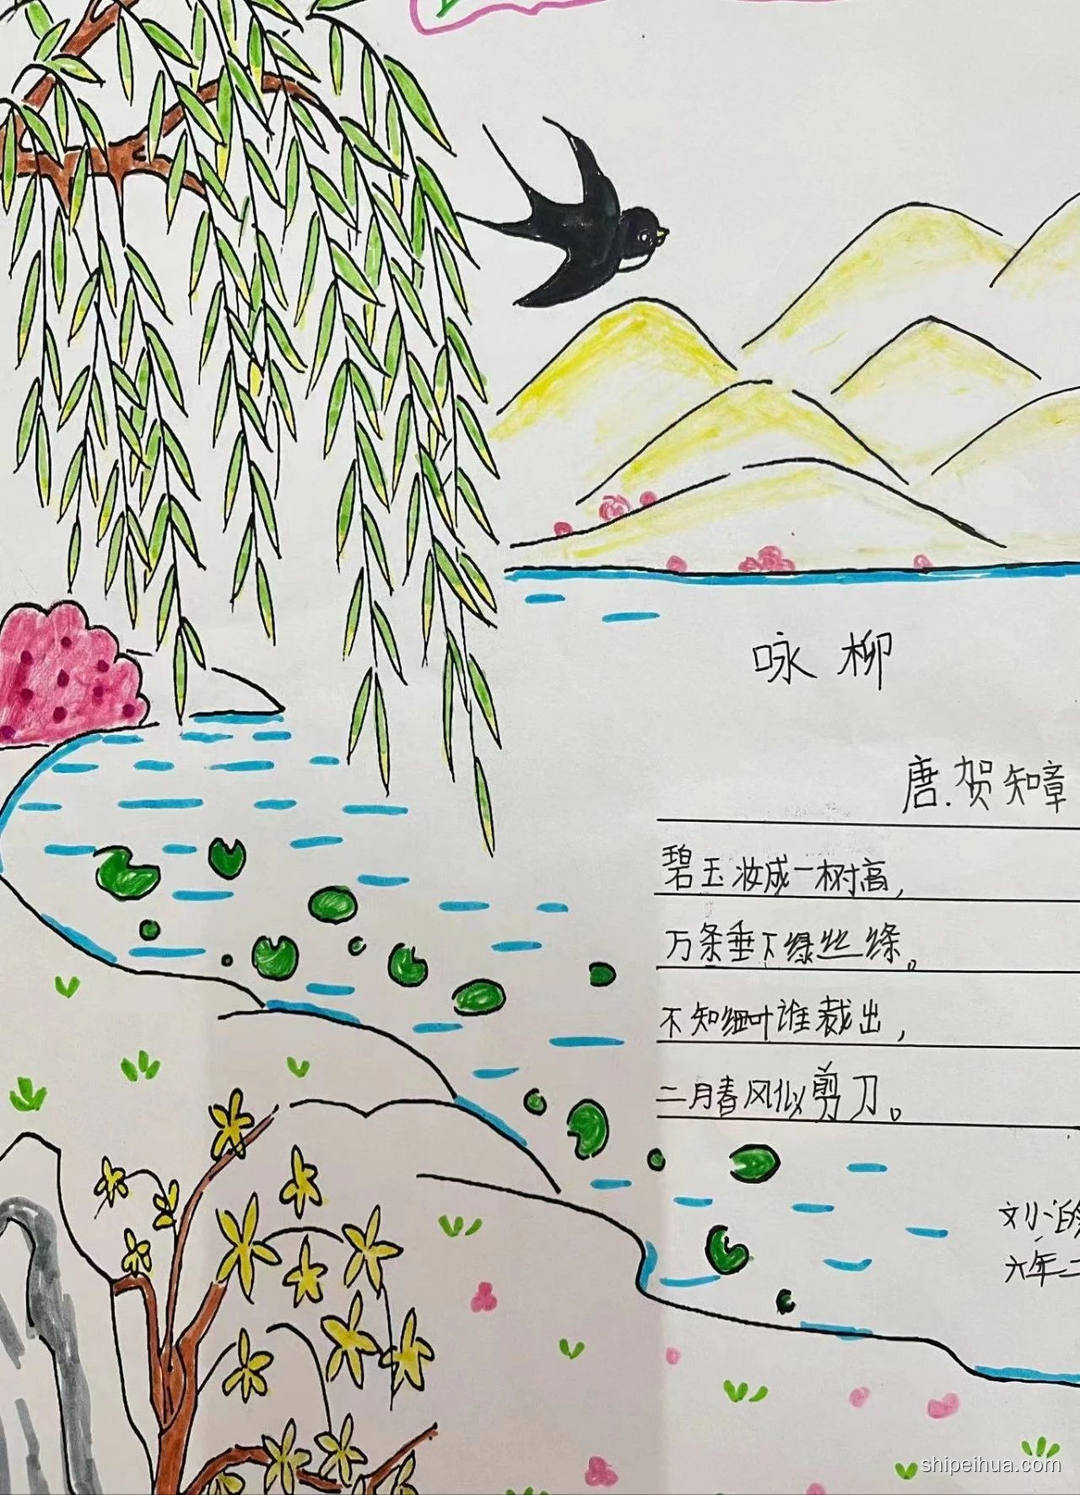 咏柳
唐.贺知章
碧玉妆成一树高,
万条垂下绿丝绦。
不知细叶谁裁出,
二月春风似剪刀。
六年二
shipeihua.com